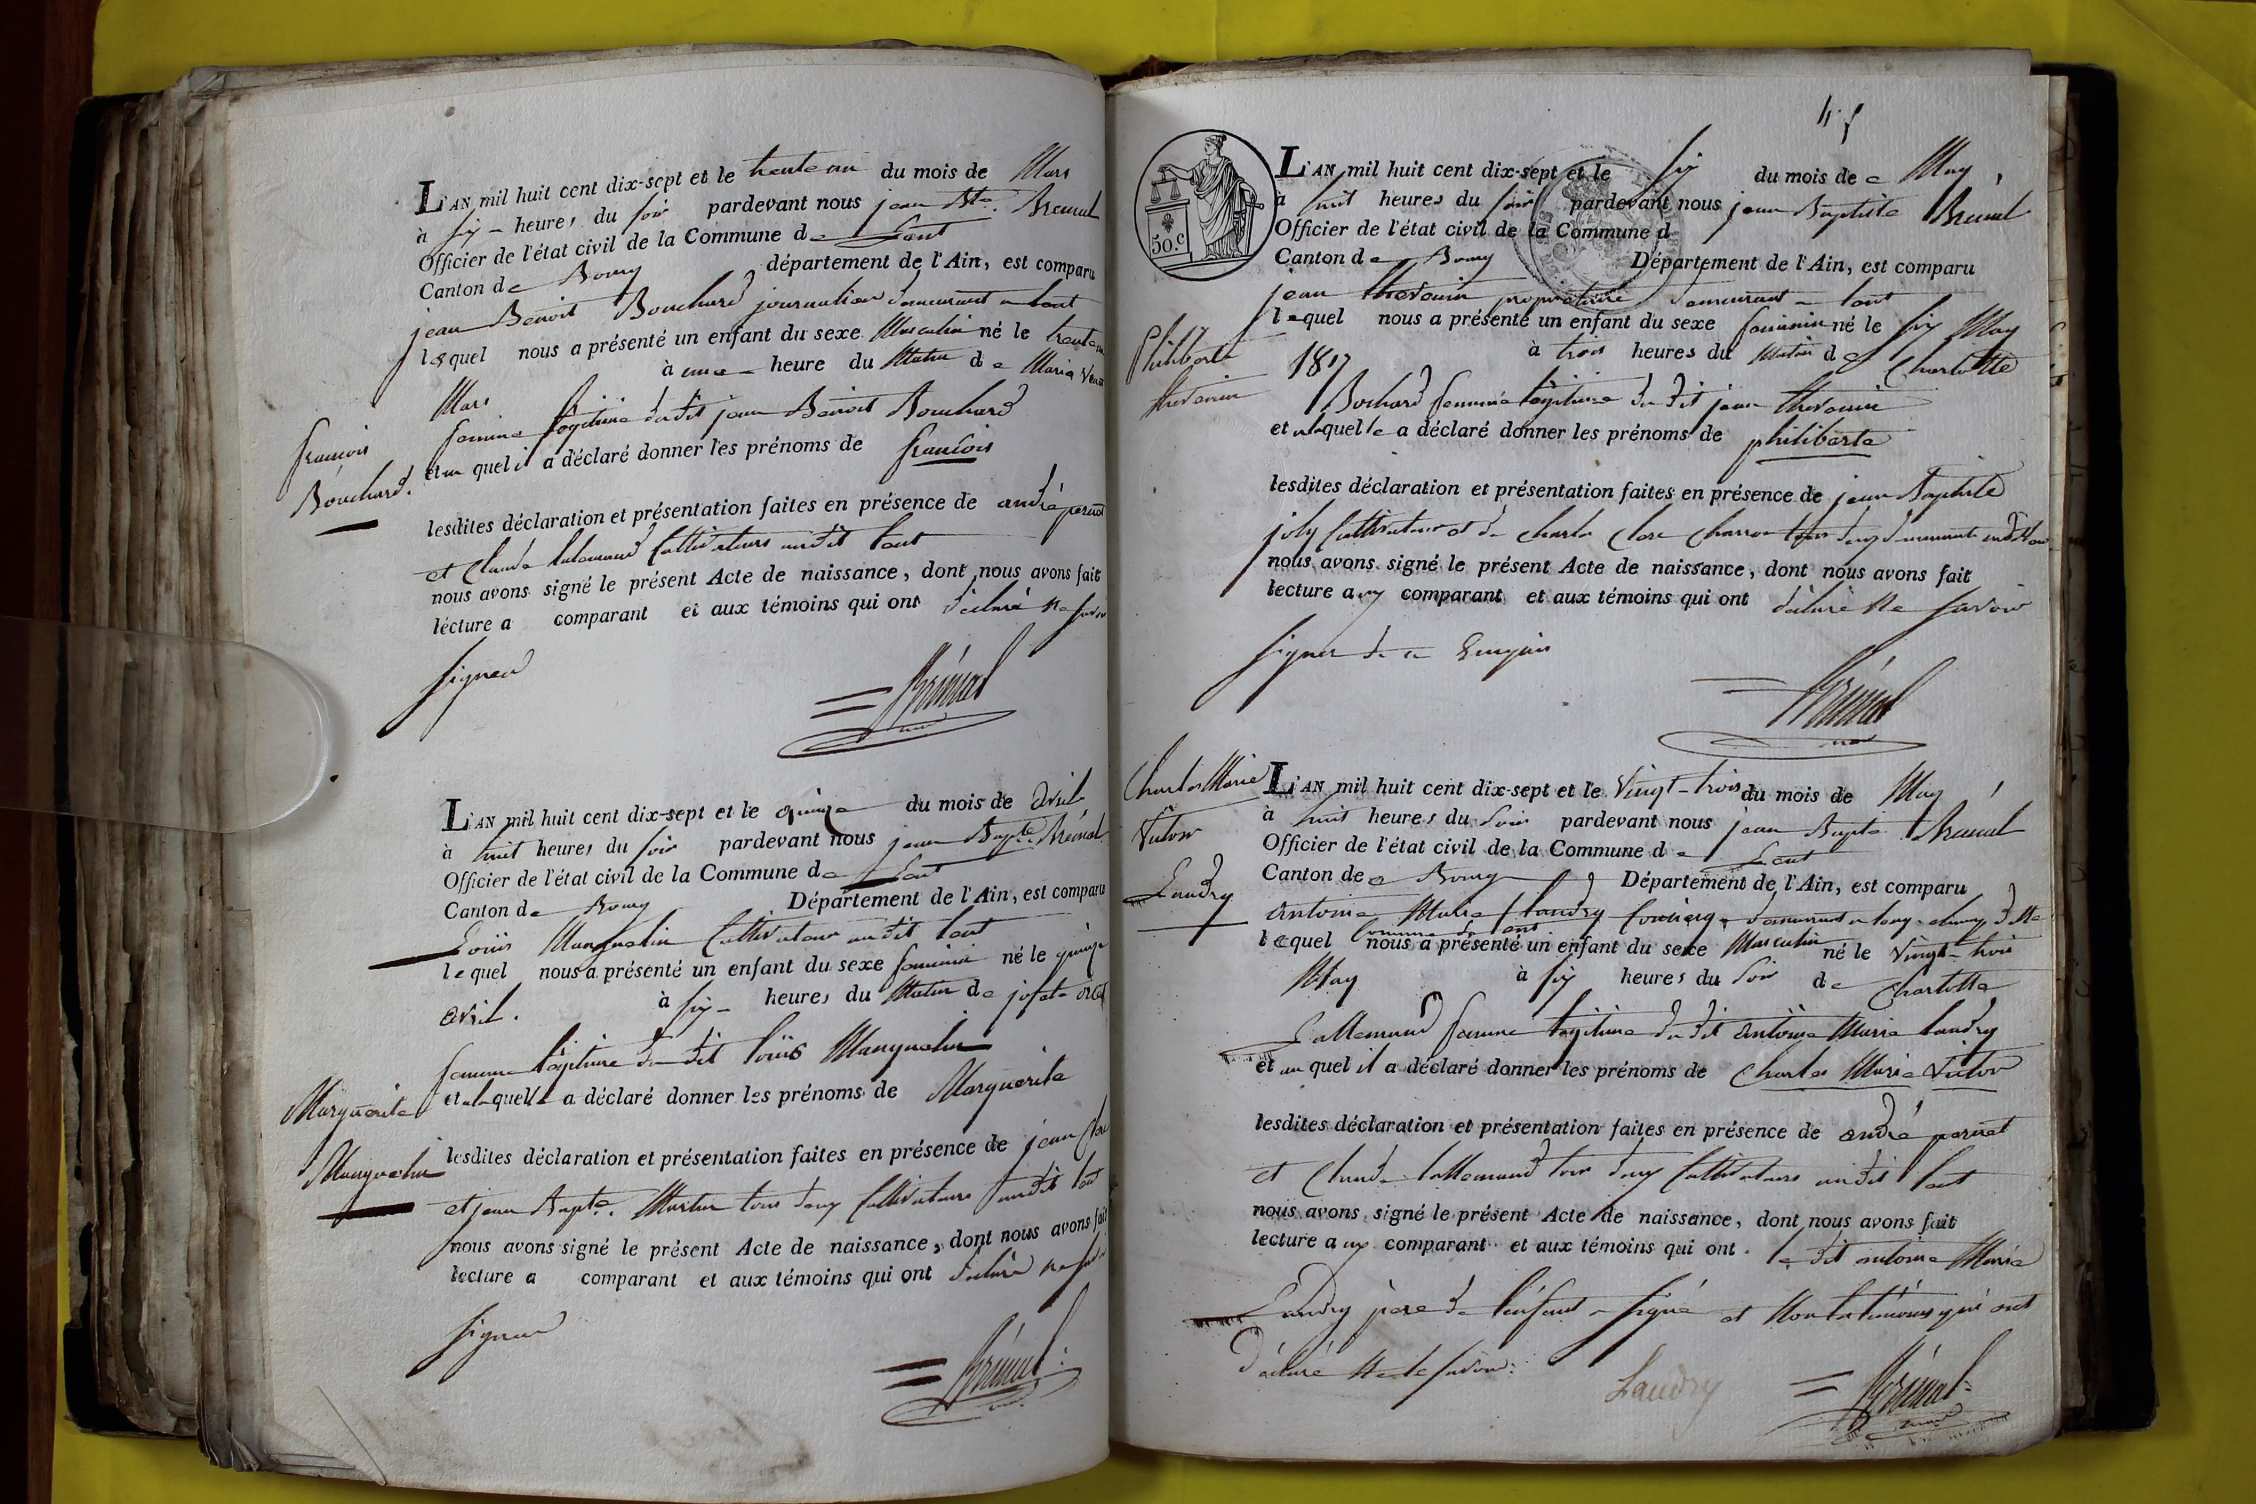 L'AN mil huit cent dix-sept et le trente un du mois de Mars
à six heures du soir pardevant nous jean Bte. Brevet
Officier de l'état civil de la Commune de Lent
Canton de Bourg département de l'Ain, est comparu
jean Benoit Bouchard journalier demeurant a Lent
lequel nous a présenté un enfant du sexe Masculin né le trente un
Mars à une heure du Matin de Marie
femme légitime dudit jean Benoit Bouchard
et au quel il a déclaré donner les prénoms de françois
françois
Bouchard.
lesdites déclaration et présentation faites en présence de andré pernet
et Claude lalemand Cultivateurs audit Lent
nous avons signé le présent Acte de naissance, dont nous avons fait
lécture a comparant et aux témoins qui ont déclaré ne savoir
signer
L'AN mil huit cent dix-sept et le quinze du mois de avril
à huit heures du soir pardevant nous jean Bapte.
Officier de l'état civil de la Commune de Lent
Canton de Bourg Département de l'Ain, est comparu
Louis Manguelin Cultivateur audit Lent
lequel nous a présenté un enfant du sexe feminin né le quinze
avril. à six heures du Matin de
femme légitime du dit Louis Manguelin
et a laquelle a déclaré donner les prénoms de Marguerite
Marguerite
Manguelin
lesdites déclaration et présentation faites en présence de jean Clerc
et jean Bapte. Martin tous deux Cultivateurs audit Lent
nous avons signé le présent Acte de naissance, dont nous avons fait
lecture a comparant et aux témoins qui ont déclaré ne savoir
signer
50.c
L'AN mil huit cent dix-sept et le six du mois de May
à huit heures du soir pardevant nous jean Baptiste
Officier de l'état civil de la Commune d
Canton de Bourg Département de l'Ain, est comparu
jean thevenin propriétaire demeurant a Lent
lequel nous a présenté un enfant du sexe feminin né le six May
1817 à trois heures du Matin de Charlotte
Philiberte
thevenin
Bochard femme légitime du dit jean thevenin
et a laquelle a déclaré donner les prénoms de philiberte
lesdites déclaration et présentation faites en présence de jean Baptiste
joly Cultivateur et de Charles Clerc Charron tous deux demeurants audit Lent
nous avons signé le présent Acte de naissance, dont nous avons fait
lecture aux comparant et aux témoins qui ont déclaré ne savoir
signer de ce Enquis
Charles Marie
Victor
Landry
L'AN mil huit cent dix-sept et le Vingt-trois du mois de May
à huit heures du Soir pardevant nous jean Bapte
Officier de l'état civil de la Commune de Lent
Canton de Bourg Département de l'Ain, est comparu
antoine Marie Landry demeurant a longchamp dite
Commune de Lent
lequel nous a présenté un enfant du sexe Masculin né le Vingt-trois
May à six heures du Soir de Charlotte
Lallemand femme légitime du dit antoine Marie Landry
et au quel il a déclaré donner les prénoms de Charles Marie Victor
lesdites déclaration et présentation faites en présence de andré pernet
et Claude lallemand tous deux Cultivateurs audit Lent
nous avons signé le présent Acte de naissance, dont nous avons fait
lecture aux comparant et aux témoins qui ont. le dit antoine Marie
Landry père de l'enfant a signé et Non les témoins qui ont
déclaré Ne le savoir.
Landry